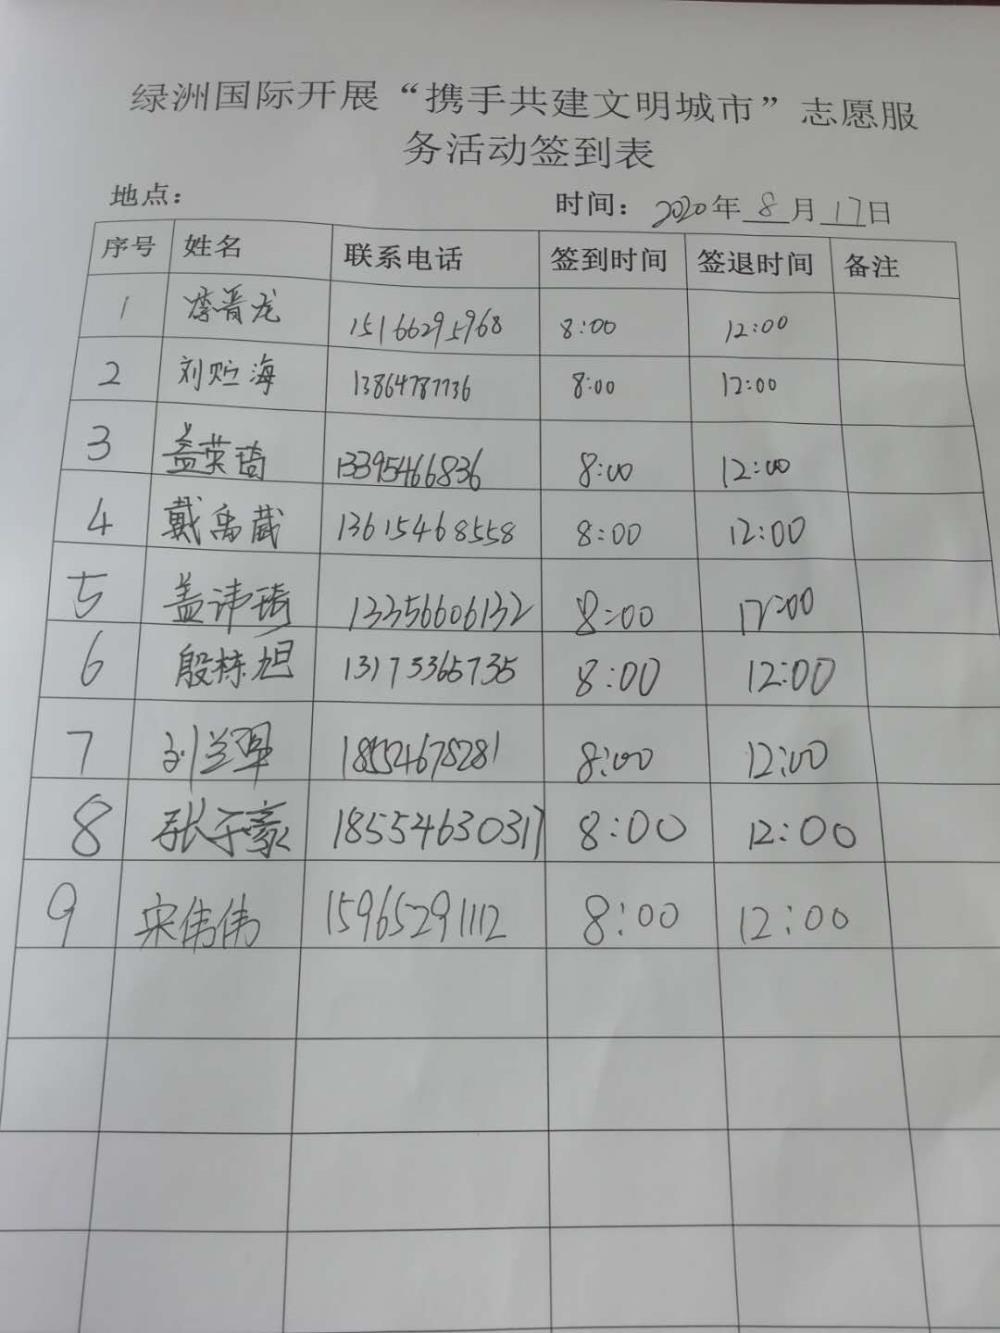 绿洲国际开展“携手共建文明城市”志愿服
务活动签到表
地点： 时间： 2020年 8 月 17日
序号 姓名 联系电话 签到时间 签退时间 备注
1 李晋龙 15166295968 8:00 12:00
2 刘贮海 13864787736 8:00 12:00
3 盖英琦 13395466836 8:00 12:00
4 戴禹葳 13615468558 8:00 12:00
5 盖讳琦 13356606132 8:00 12:00
6 殷栋旭 13175365735 8:00 12:00
7 刘兰翠 18554678281 8:00 12:00
8 张子豪 18554630317 8:00 12:00
9 宋伟伟 15965291112 8:00 12:00